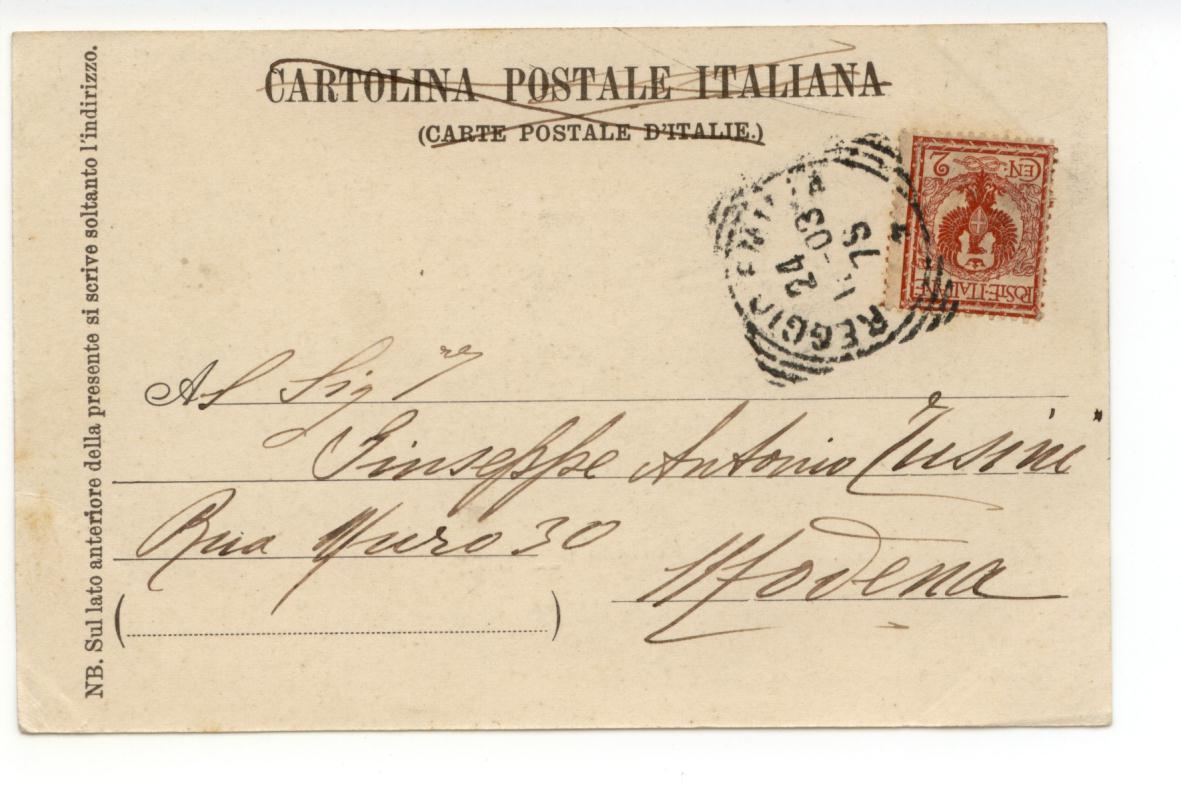 CARTOLINA POSTALE ITALIANA
(CARTE POSTALE D'ITALIE.)
NB. Sul lato anteriore della presente si scrive soltanto l'indirizzo.
CEN: 2
POSTE·ITALIANE
REGGIO EMILIA
24
-03
7S
Al Sig.re
Giuseppe Antonio Tusini
Rua Muro 30
Modena